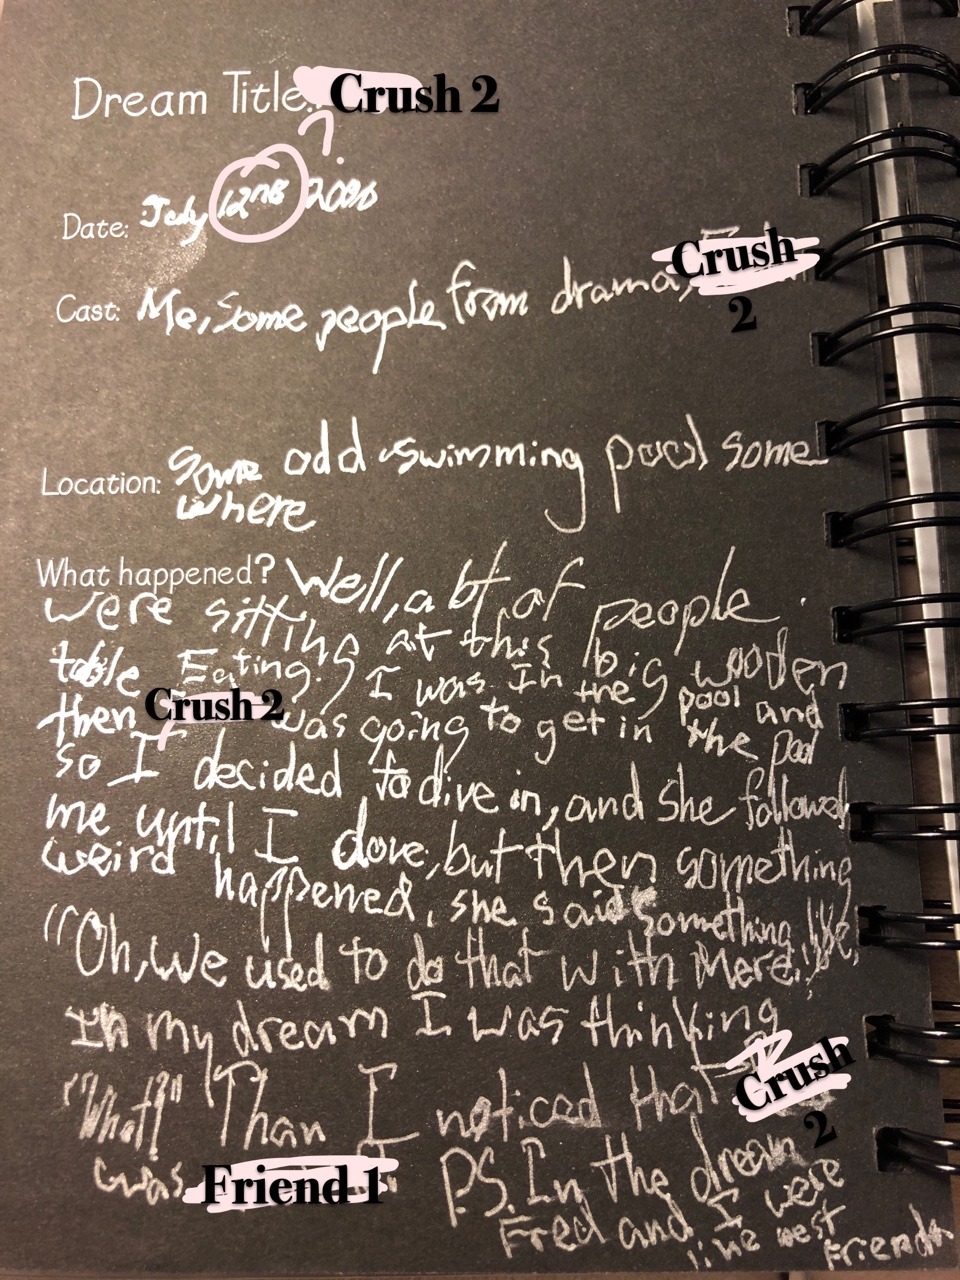 Dream Title: Crush 2
?
Date: July 12nd
Cast: Me, some people from drama, Crush
2
Location: Some odd swimming pool some
where
What happened? Well, a lot of people
were sitting at this big wooden
table Eating. I was In the pool and
then Crush 2 was going to get in the pool
so I decided to dive in, and she followed
me until I dove, but then something
weird happened, she said something like,
"Oh, we used to do that with Mere,"
In my dream I was thinking
"What?" Than I noticed that Crush
2
was Friend 1 P.S. In the dream
Fred and I were
like best Friends